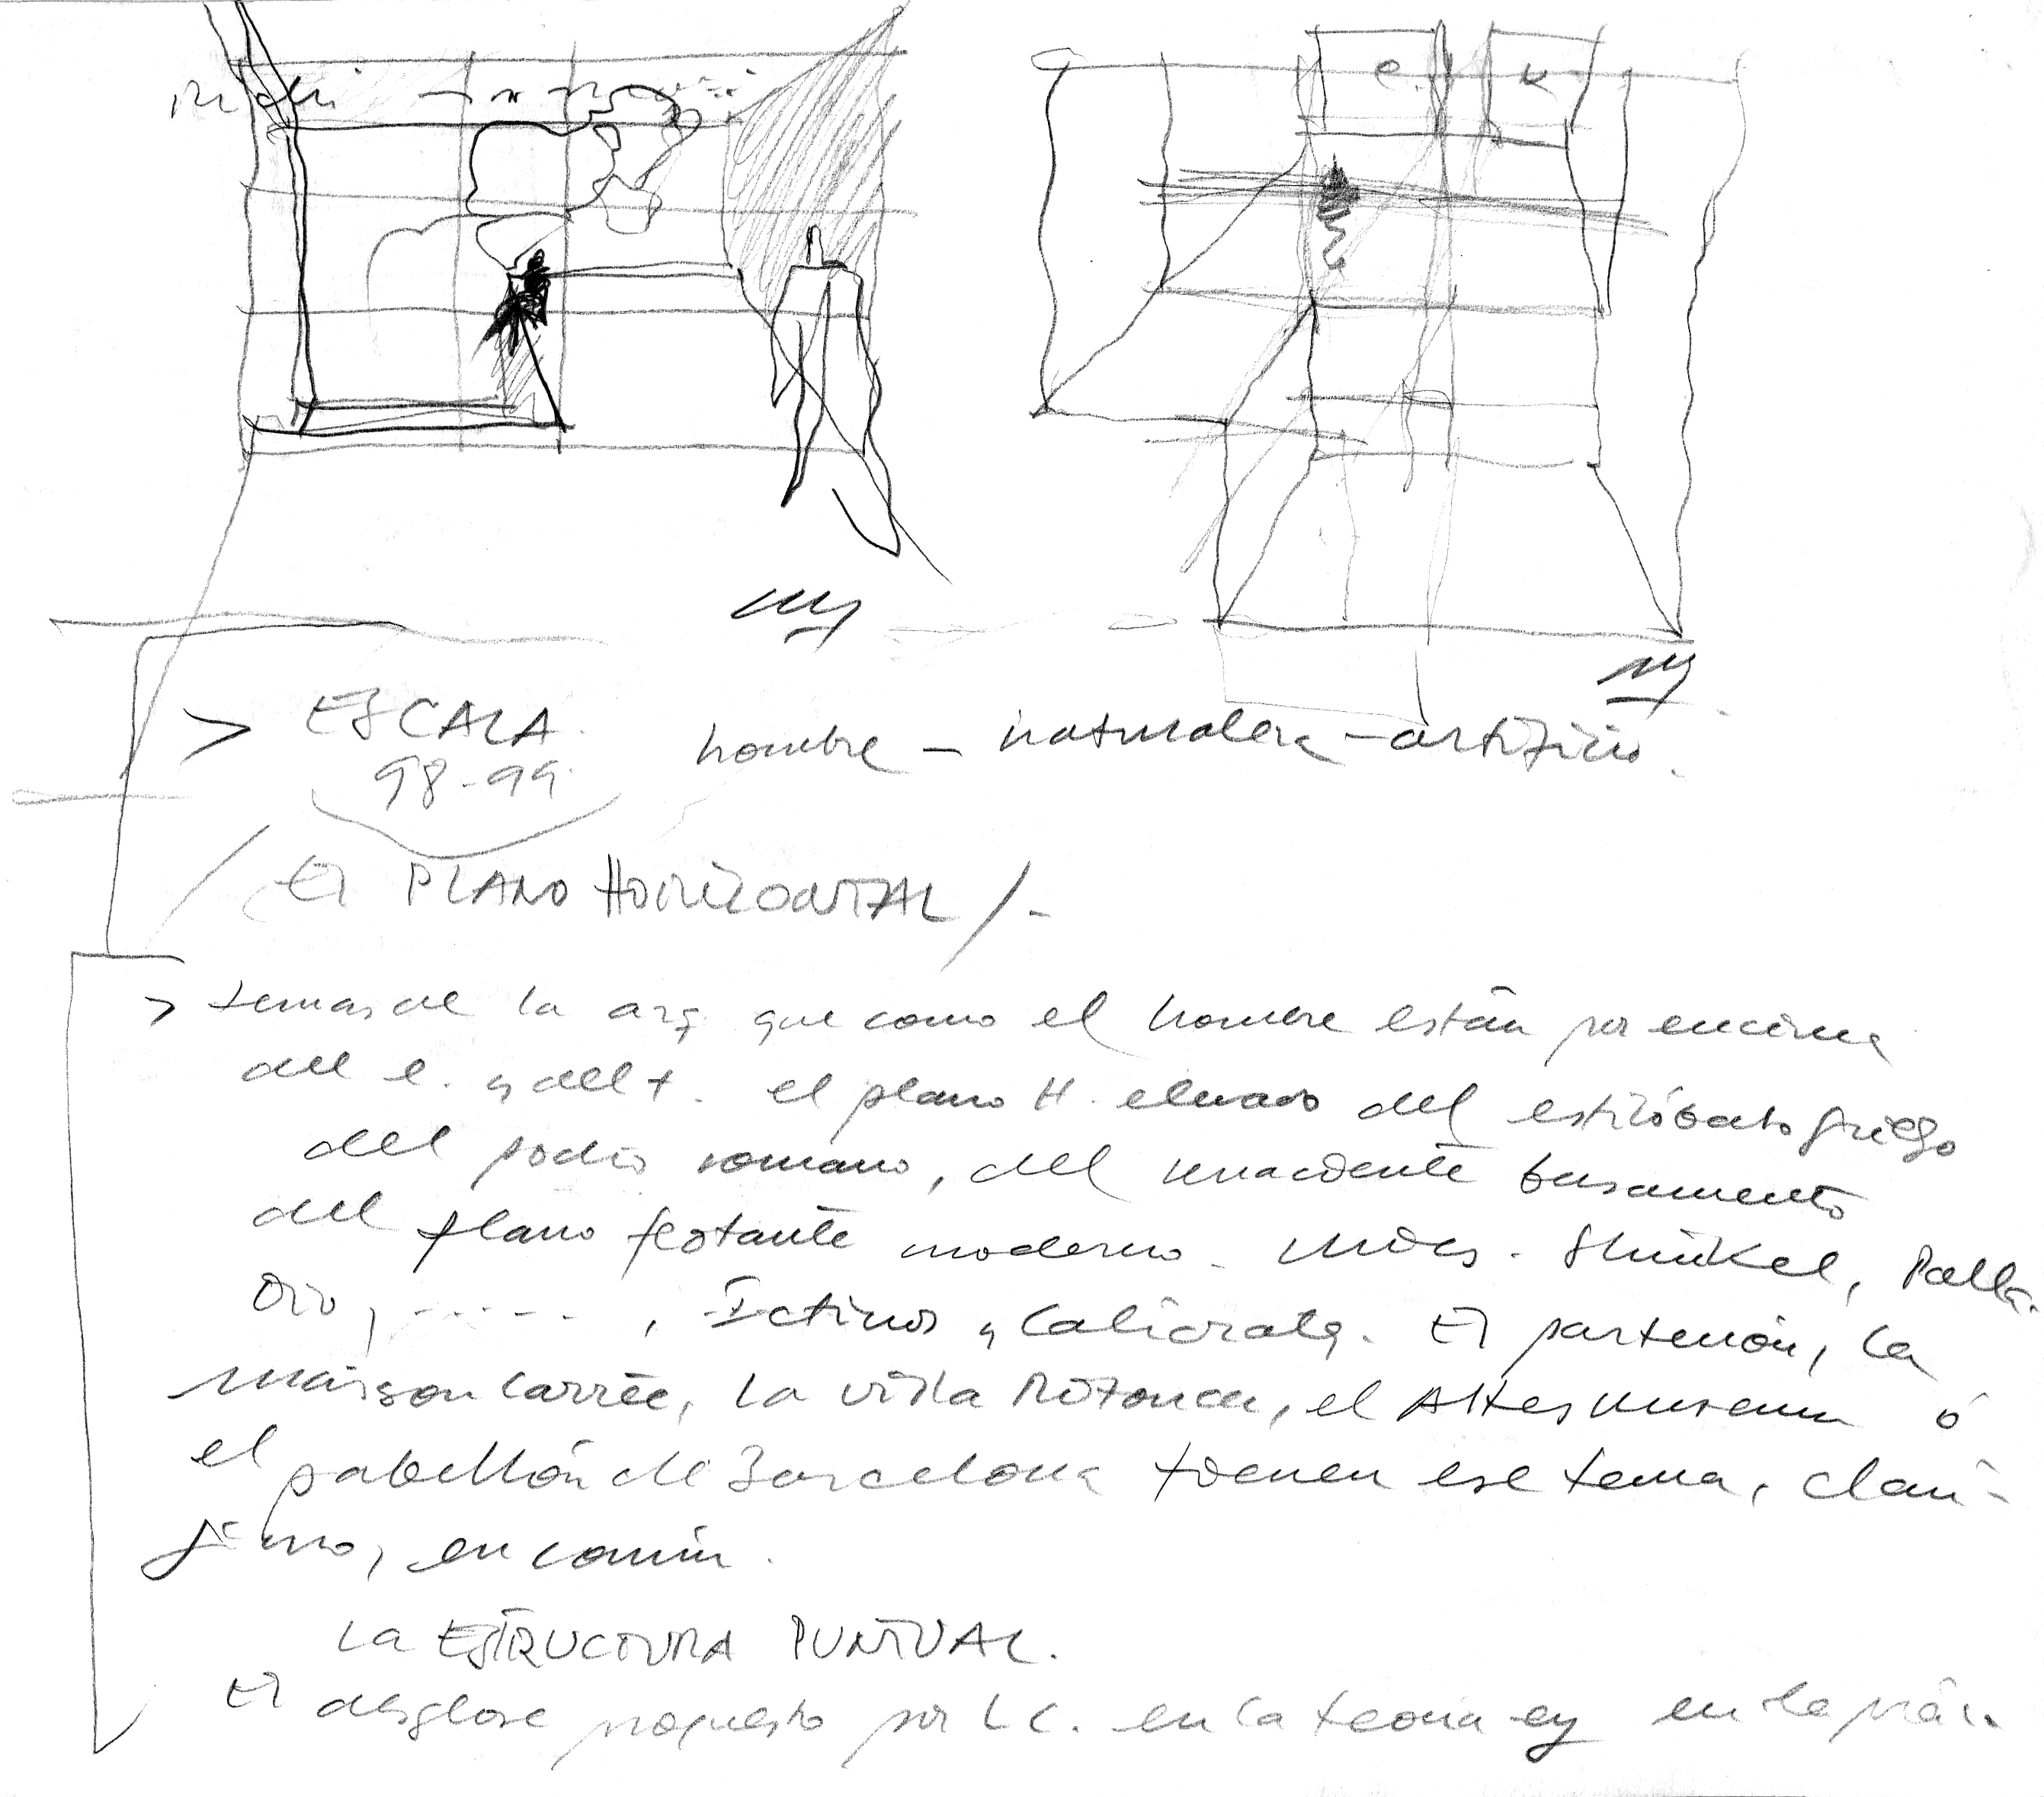 e k
> ESCALA
98-99
hombre – naturaleza – artificio.
/ El PLANO HORIZONTAL / -
> temas de la arq. que como el hombre están por encima
del e. y del t. el plano H. elevado del estilóbato griego
del podio romano, del renacente basamento
del plano flotante moderno. Mies. Shinkel, Palla-
dio, ......, Ictinos y Calicrates. El partenón, la
maison carrée, la villa Rotonda, el Altes Museum ó
el pabellón de Barcelona tienen ese tema, clarí-
simo, en común.
La ESTRUCTURA PUNTUAL.
El desglose propuesto por L C. en la teoria y en la prác.